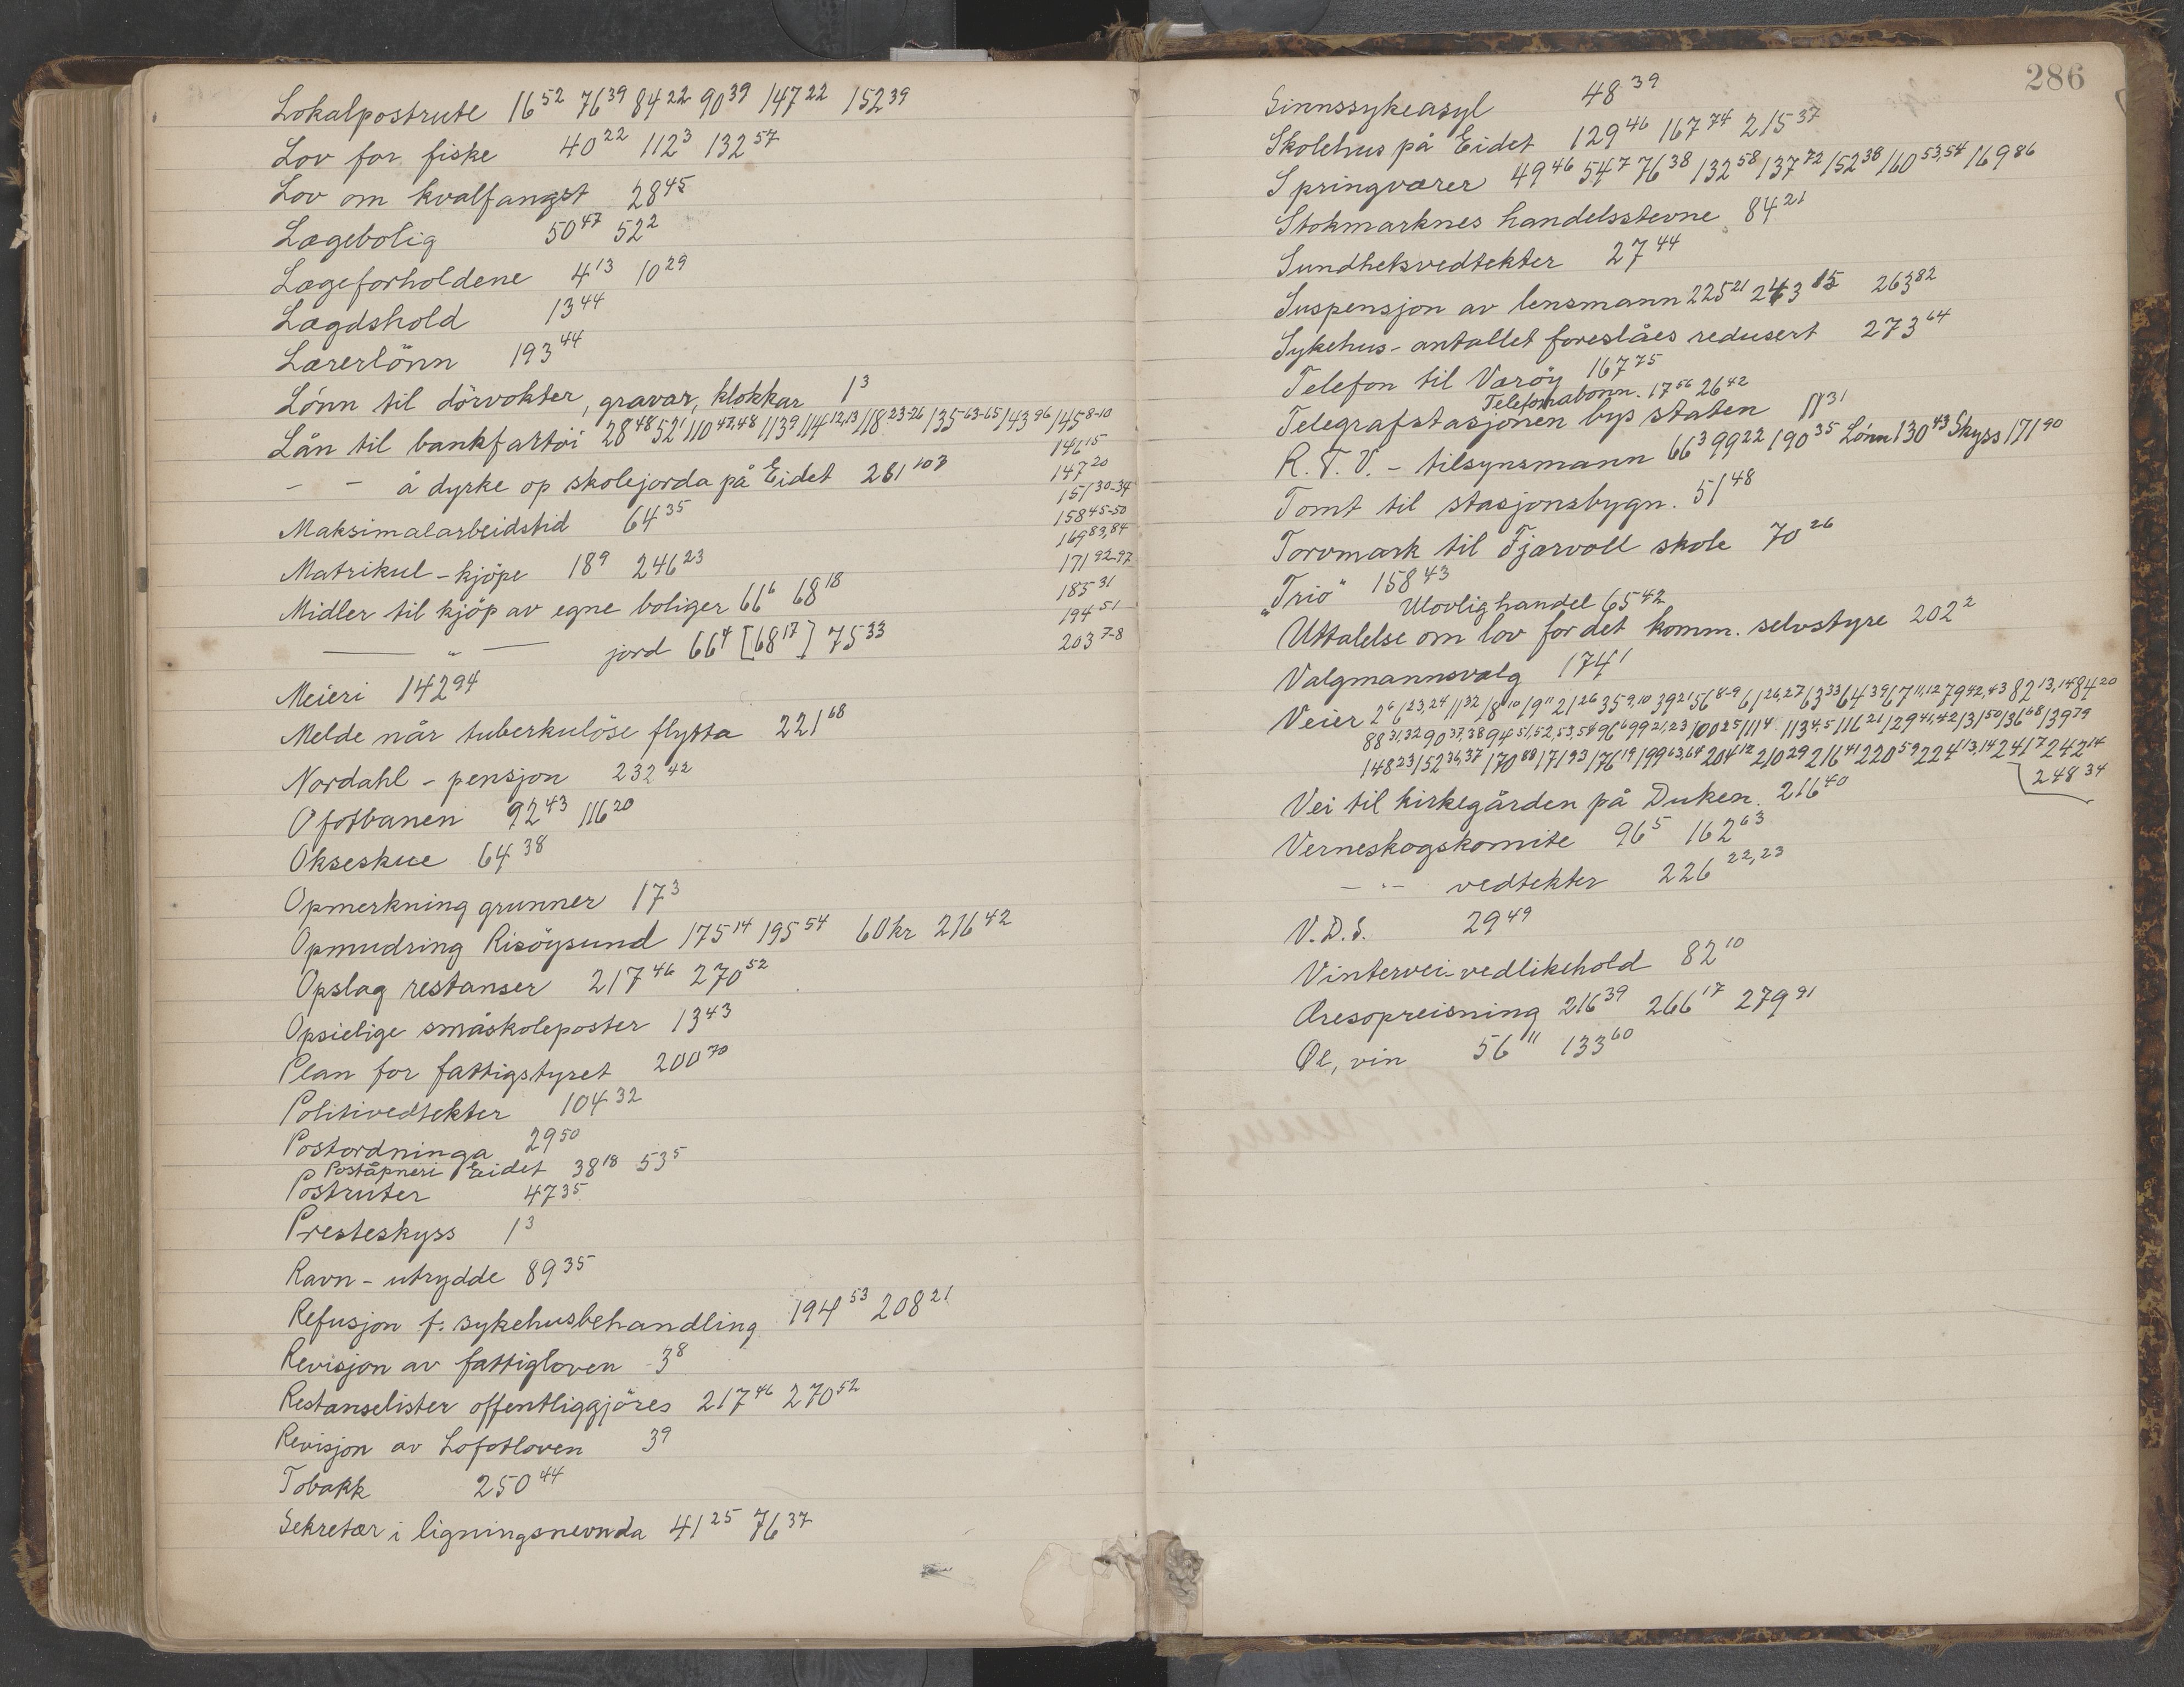 Lokalpostrute 16⁵² 76³⁹ 84²² 90³⁹ 147²² 152³⁹
Lov for fiske 40²² 112³ 132⁵⁷
Lov om kvalfangst 28⁴⁵
Lægebolig 50⁴⁷ 52²
Lægeforholdene 4¹³ 10²⁹
Lægdshold 13⁴⁴
Lærerlönn 193⁴⁴
Lönn til dörvokter, gravar, klokkar 1³
Lån til bankfartöi 28⁴⁸ 52¹ 110⁴⁷,⁴⁸ 113⁹ 114¹²,¹³ 118²³⁻²⁶ 135⁶³⁻⁶⁵ 143⁹⁶ 145⁸⁻¹⁰
146¹⁵
147²⁰
151³⁰⁻³⁴
158⁴⁵⁻⁵⁰
169⁸³,⁸⁴
171⁹²⁻⁹⁷
185³¹
194⁵¹
203⁷⁻⁸
– – å dyrke op skolejorda på Eidet 281¹⁰³
Maksimalarbeidstid 64³⁵
Matrikul – kjöpe 18⁹ 246²³
Midler til kjöp av egne boliger 66⁶ 68¹⁸
— " — jord 66⁴ [68¹⁷] 75³³
Meieri 142⁹⁴
Melde når tuberkulöse flytta 221⁶⁸
Nordahl – pensjon 232⁴²
Ofotbanen 92⁴³ 116²⁰
Okseskue 64³⁸
Opmerkning grunner 17³
Opmudring Risöysund 175¹⁴ 195⁵⁴ 60 kr 216⁴²
Opslag restanser 217⁴⁶ 270⁵²
Opsielige småskoleposter 13⁴³
Plan for fattigstyret 200⁷⁰
Politivedtekter 104³²
Postordninga 29⁵⁰
Poståpneri Eidet 38¹⁸ 53⁵
Postruter 47³⁵
Presteskyss 1³
Ravn – utrydde 89³⁵
Refusjon f. sykehusbehandling 194⁵³ 208²¹
Revisjon av fattigloven 3⁸
Restanselister offentliggjöres 217⁴⁶ 270⁵²
Revisjon av Lofotloven 3⁹
Tobakk 250⁴⁴
Sekretær i ligningsnevnda 41²⁵ 76³⁷
286
Sinnssykeasyl 48³⁹
Skolehus på Eidet 129⁴⁶ 167⁷⁴ 215³⁷
Springvarer 49⁴⁶ 54⁷ 76³⁸ 132⁵⁸ 137⁷² 152³⁸ 160⁵³,⁵⁴ 169⁸⁶
Stokmarknes handelsstevne 84²¹
Sundhetsvedtekter 27⁴⁴
Suspensjon av lensmann 225²¹ 243¹⁵ 263⁸²
Sykehus – antallet foreslåes redusert 273⁶⁴
Telefon til Væröy 167⁷⁵
Telefonabonn. 17⁵⁶ 26⁴²
Telegrafstasjonen bys staten 11³¹
R. T. V. – tilsynsmann 66³ 99²² 190³⁵ Lönn 130⁴³ Skyss 171⁹⁰
Tomt til stasjonsbygn. 51⁴⁸
Torvmark til Fjærvoll skole 70²⁶
"Trio" 158⁴³
Ulovlig handel 65⁴²
Uttalelse om lov for det komm. selvstyre 202²
Valgmannsvalg 174¹
Veier 2⁶ 6²³,²⁴ 11³² 18¹⁰ 19¹¹ 21²⁶ 35⁹,¹⁰ 39²¹ 56⁸⁻⁹ 61²⁶,²⁷ 63³³ 64³⁹ 67¹¹,¹² 79⁴²,⁴³ 82¹³,¹⁴ 84²⁰
88³¹,³² 90³⁷,³⁸ 94⁵¹,⁵²,⁵³,⁵⁴ 96⁶ 99²¹,²³ 100²⁵ 111⁴ 113⁴,⁵ 116²¹ 129⁴¹,⁴² 131⁵⁰ 136⁶⁸ 139⁷⁹
148²³ 152³⁶,³⁷ 170⁸⁸ 171⁹³ 176¹⁹ 199⁶³,⁶⁴ 204¹² 210²⁹ 216⁴¹ 220⁵⁹ 224¹³,¹⁴ 241⁷ 242¹⁴
248³⁴
Vei til kirkegården på Duken. 216⁴⁰
Verneskogskomite 96⁵ 162⁶³
– " – vedtekter 226²²,²³
V.D.S. 29⁴⁹
Vintervei vedlikehold 82¹⁰
Æresopreisning 216³⁹ 266¹⁷ 279⁹¹
Øl, vin 56¹¹ 133⁶⁰